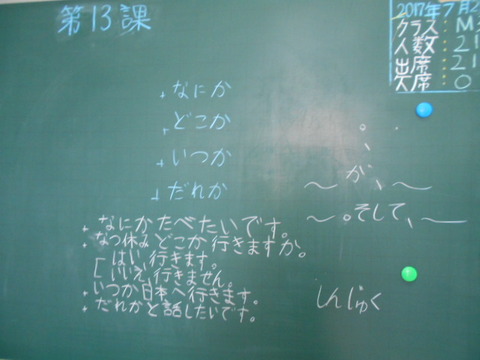 第13課
2017年7月2
クラス M
人数 21
出席 21
欠席 0
なにか
どこか
いつか
だれか
。
、
～が、～
～。そして、～
なにかたべたいです。
なつ休みどこか行きますか。
はい、行きます。
いいえ、行きません。
いつか日本へ行きます。
だれかと話したいです。
しんじゅく